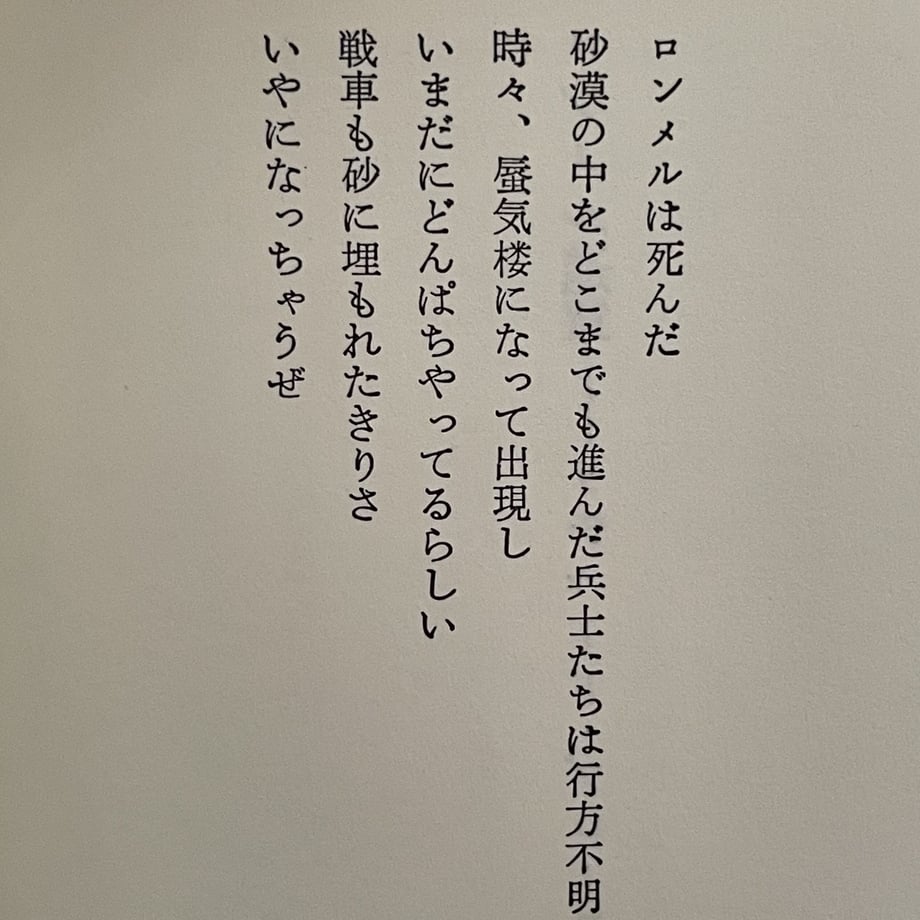 ロンメルは死んだ
砂漠の中をどこまでも進んだ兵士たちは行方不明
時々、蜃気楼になって出現し
いまだにどんぱちやってるらしい
戦車も砂に埋もれたきりさ
いやになっちゃうぜ